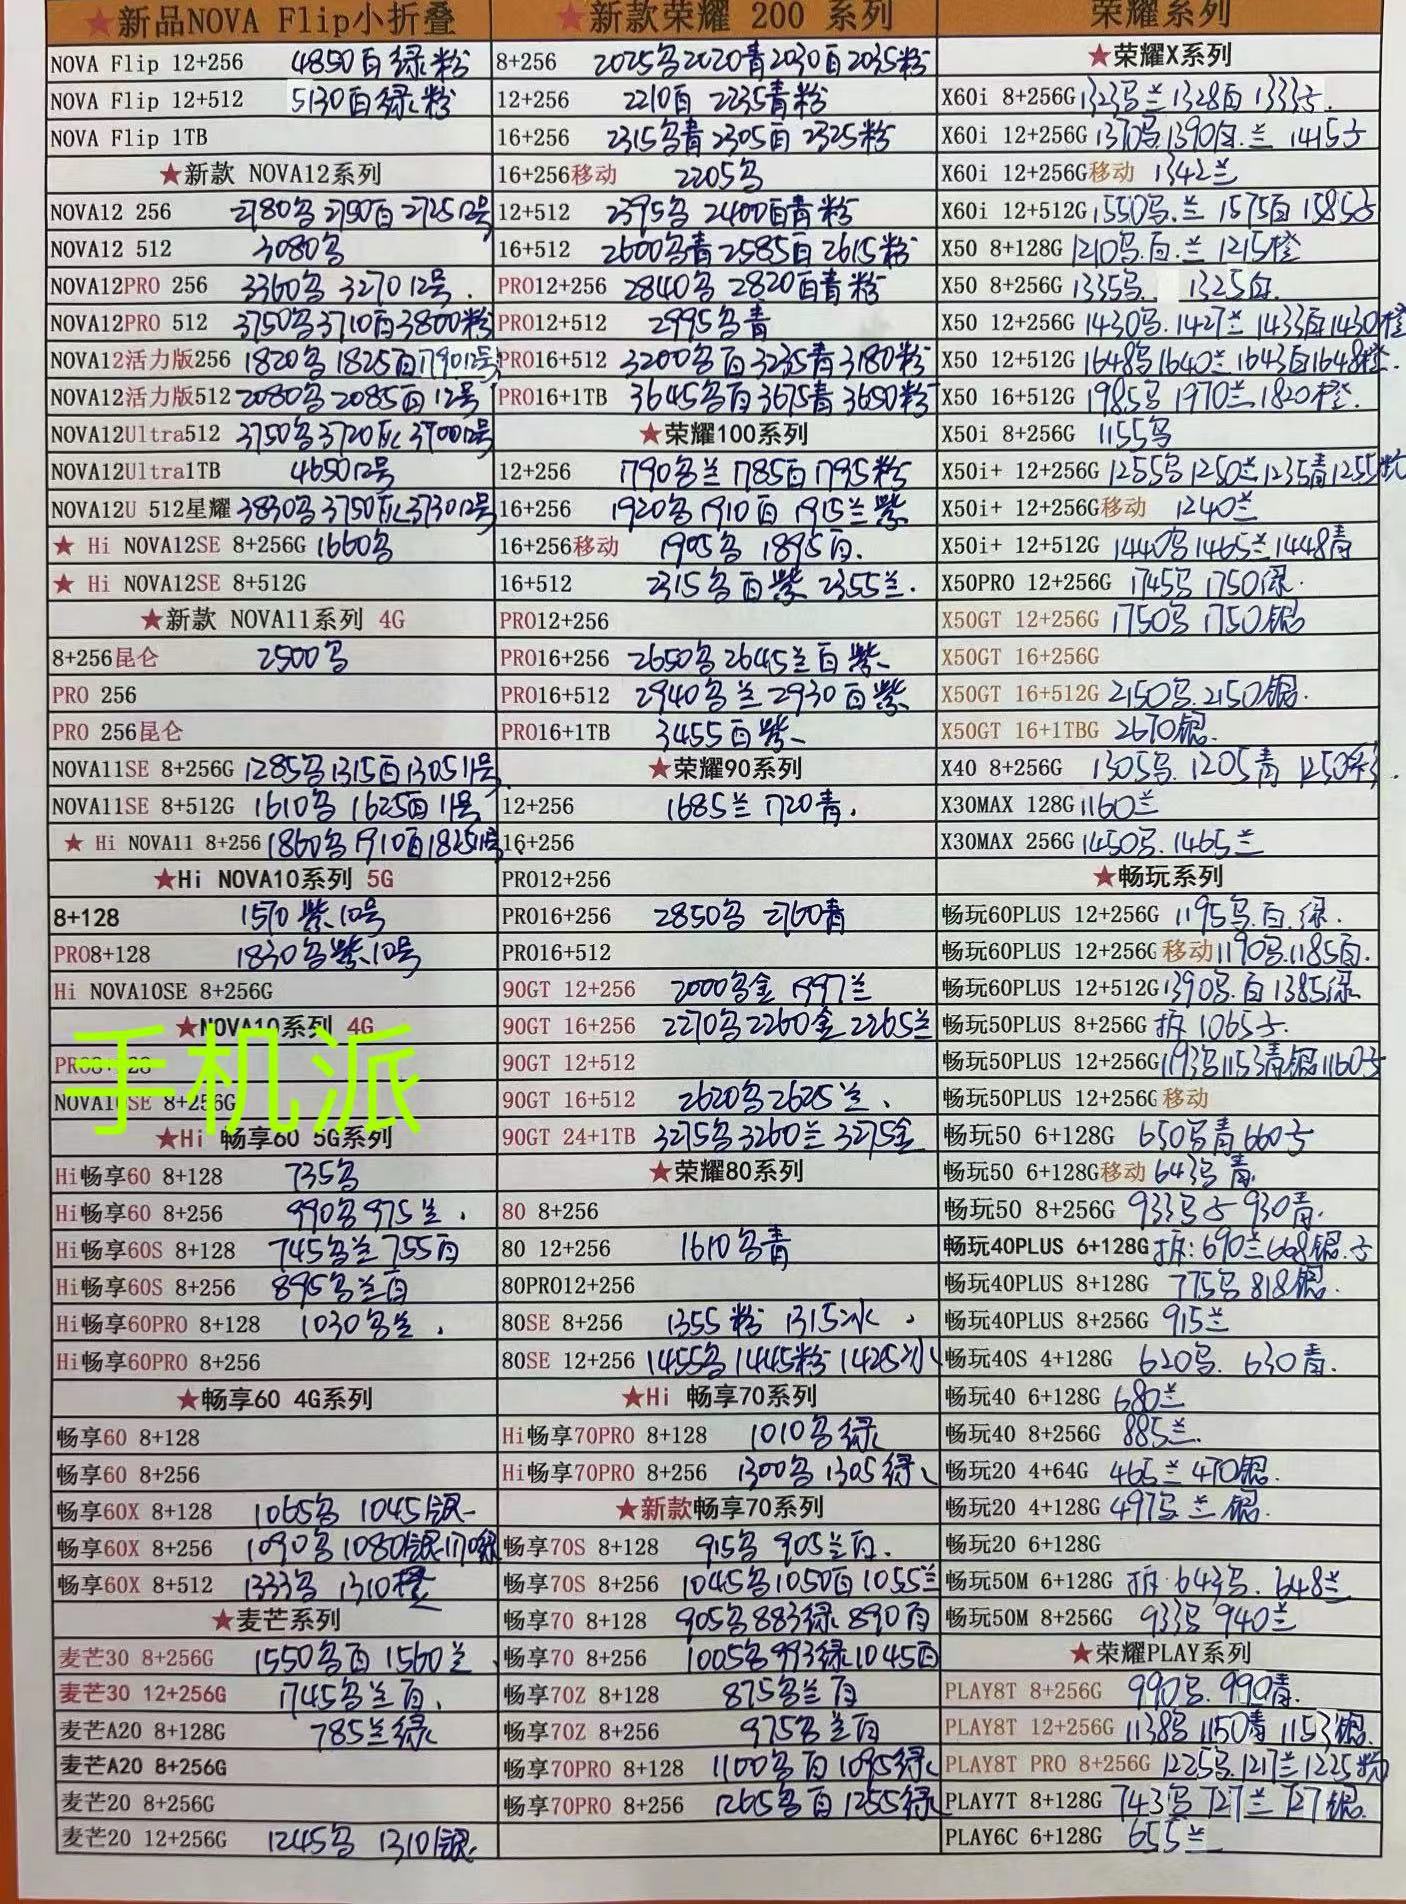 ★新品NOVA Flip小折叠
NOVA Flip 12+256 4850白绿粉
NOVA Flip 12+512 5130白绿粉
NOVA Flip 1TB
★新款 NOVA12系列
NOVA12 256 2780鸟2750白2725 12号
NOVA12 512 3080鸟
NOVA12PRO 256 3360鸟 3270 12号.
NOVA12PRO 512 3750鸟3710白3800粉
NOVA12活力版256 1820鸟 1825白1790 12号
NOVA12活力版512 2080鸟2085白12号
NOVA12Ultra512 3750鸟3720 3700 12号
NOVA12Ultra1TB 4650 12号
NOVA12U 512星耀 3830鸟3750 3730 12号
★ Hi NOVA12SE 8+256G 1660鸟
★ Hi NOVA12SE 8+512G
★新款 NOVA11系列 4G
8+256昆仑 2500鸟
PRO 256
PRO 256昆仑
NOVA11SE 8+256G 1285鸟1315白1305 11号
NOVA11SE 8+512G 1610鸟 1625白 11号
★ Hi NOVA11 8+256 1860鸟1910白1825 11号
★Hi NOVA10系列 5G
8+128 1570紫10号
PRO8+128 1830鸟紫10号
Hi NOVA10SE 8+256G
★NOVA10系列 4G
手机派
PRO8+128
NOVA10SE 8+256G
★Hi 畅享60 5G系列
Hi畅享60 8+128 735鸟
Hi畅享60 8+256 990鸟975兰.
Hi畅享60S 8+128 745鸟兰755白
Hi畅享60S 8+256 895鸟兰白
Hi畅享60PRO 8+128 1030鸟兰.
Hi畅享60PRO 8+256
★畅享60 4G系列
畅享60 8+128
畅享60 8+256
畅享60X 8+128 1065鸟 1045银
畅享60X 8+256 1090鸟1080银1170绿
畅享60X 8+512 1333鸟 1310橙
★麦芒系列
麦芒30 8+256G 1550鸟白1560兰
麦芒30 12+256G 1745鸟兰白.
麦芒A20 8+128G 785兰绿
麦芒A20 8+256G
麦芒20 8+256G
麦芒20 12+256G 1245鸟 1310银.
★新款荣耀 200 系列
8+256 2025鸟2020青2030白2035粉
12+256 2210白 2235青粉
16+256 2315鸟青2305白 2325粉
16+256移动 2205鸟
12+512 2395鸟 2400白青粉
16+512 2600鸟青2585白2615粉
PRO12+256 2840鸟 2820白青粉
PRO12+512 2995鸟青
PRO16+512 3200鸟白3235青3180粉
PRO16+1TB 3645鸟白3675青3650粉
★荣耀100系列
12+256 1790鸟兰1785白1795粉
16+256 1920鸟1910白1915兰紫
16+256移动 1905鸟 1895白.
16+512 2315鸟白紫2355兰.
PRO12+256
PRO16+256 2650鸟2645兰白紫
PRO16+512 2940鸟兰2930白紫
PRO16+1TB 3455白紫
★荣耀90系列
12+256 1685兰1720青.
16+256
PRO12+256
PRO16+256 2850鸟 2760青
PRO16+512
90GT 12+256 2000鸟金 1997兰
90GT 16+256 2270鸟2260金2265兰
90GT 12+512
90GT 16+512 2620鸟2625兰
90GT 24+1TB 3275鸟3260兰3275金
★荣耀80系列
80 8+256
80 12+256 1610鸟青
80PRO12+256
80SE 8+256 1355粉 1315冰.
80SE 12+256 1455鸟1445粉1425冰
★Hi 畅享70系列
Hi畅享70PRO 8+128 1010鸟绿
Hi畅享70PRO 8+256 1300鸟1305绿
★新款畅享70系列
畅享70S 8+128 915鸟 905兰白.
畅享70S 8+256 1045鸟1050白1055兰
畅享70 8+128 905鸟883绿890白
畅享70 8+256 1005鸟993绿1045白
畅享70Z 8+128 875鸟兰白
畅享70Z 8+256 975鸟兰白
畅享70PRO 8+128 1100鸟白1095绿
畅享70PRO 8+256 1265鸟白1255绿
荣耀系列
★荣耀X系列
X60i 8+256G 1323鸟兰1328白1333子.
X60i 12+256G 1370鸟1390白.兰 1415子
X60i 12+256G移动 1342兰
X60i 12+512G 1550鸟.兰 1575白1585子
X50 8+128G 1210鸟.白.兰 1215橙
X50 8+256G 1335鸟. 1325白.
X50 12+256G 1430鸟.1427兰1433白1430橙
X50 12+512G 1648鸟1640兰1643白1648橙.
X50 16+512G 1985鸟 1970兰1820橙.
X50i 8+256G 1155鸟
X50i+ 12+256G 1255鸟1250兰1235青1255粉
X50i+ 12+256G移动 1240兰
X50i+ 12+512G 1440鸟1465兰1448青
X50PRO 12+256G 1745鸟 1750绿.
X50GT 12+256G 1750鸟 1750银
X50GT 16+256G
X50GT 16+512G 2150鸟.2150银.
X50GT 16+1TBG 2670银.
X40 8+256G 1305鸟.1205青 1250彩.
X30MAX 128G 1160兰
X30MAX 256G 1450鸟.1465兰
★畅玩系列
畅玩60PLUS 12+256G 1195鸟.白.绿.
畅玩60PLUS 12+256G 移动1190鸟.1185白.
畅玩60PLUS 12+512G 1390鸟.白1385绿
畅玩50PLUS 8+256G 拆1065子.
畅玩50PLUS 12+256G 1193鸟1153青银1160子
畅玩50PLUS 12+256G 移动
畅玩50 6+128G 650鸟青660子
畅玩50 6+128G移动 643鸟青.
畅玩50 8+256G 933鸟子930青.
畅玩40PLUS 6+128G 拆:690兰668银.子
畅玩40PLUS 8+128G 775鸟818银.
畅玩40PLUS 8+256G 915兰
畅玩40S 4+128G 620鸟. 630青.
畅玩40 6+128G 680兰
畅玩40 8+256G 885兰.
畅玩20 4+64G 465兰470银.
畅玩20 4+128G 497鸟兰银.
畅玩20 6+128G
畅玩50M 6+128G 拆.643鸟.648兰
畅玩50M 8+256G 933鸟940兰
★荣耀PLAY系列
PLAY8T 8+256G 990鸟.990青.
PLAY8T 12+256G 1138鸟1150青1153银.
PLAY8T PRO 8+256G 1225鸟.1217兰1225粉
PLAY7T 8+128G 743鸟727兰727银.
PLAY6C 6+128G 655兰